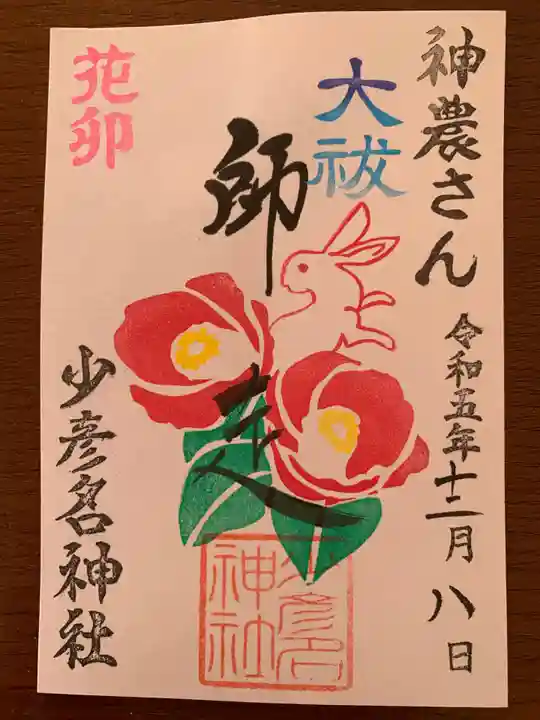 神農さん
令和五年十二月八日
大祓
師走
花卯
少彦名神社
少彦名神社